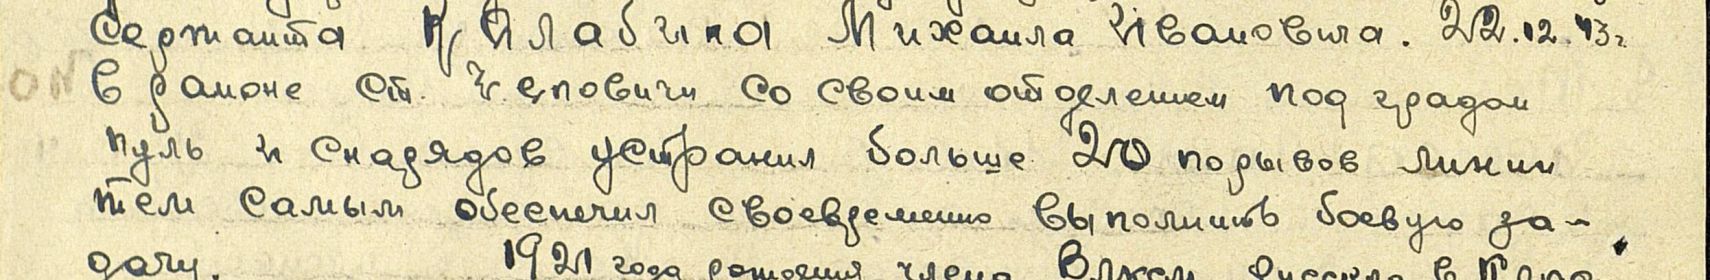 Сержанта Михаила Ивановича. 22.12.43г
в районе ст. Чеповичи со своим отделением под градом
пуль и снарядов устранил больше 20 порывов линии
тем самым обеспечил своевременно выполнить боевую за-
дачу. 1921 года рождения члена ВЛКСМ, русского, в